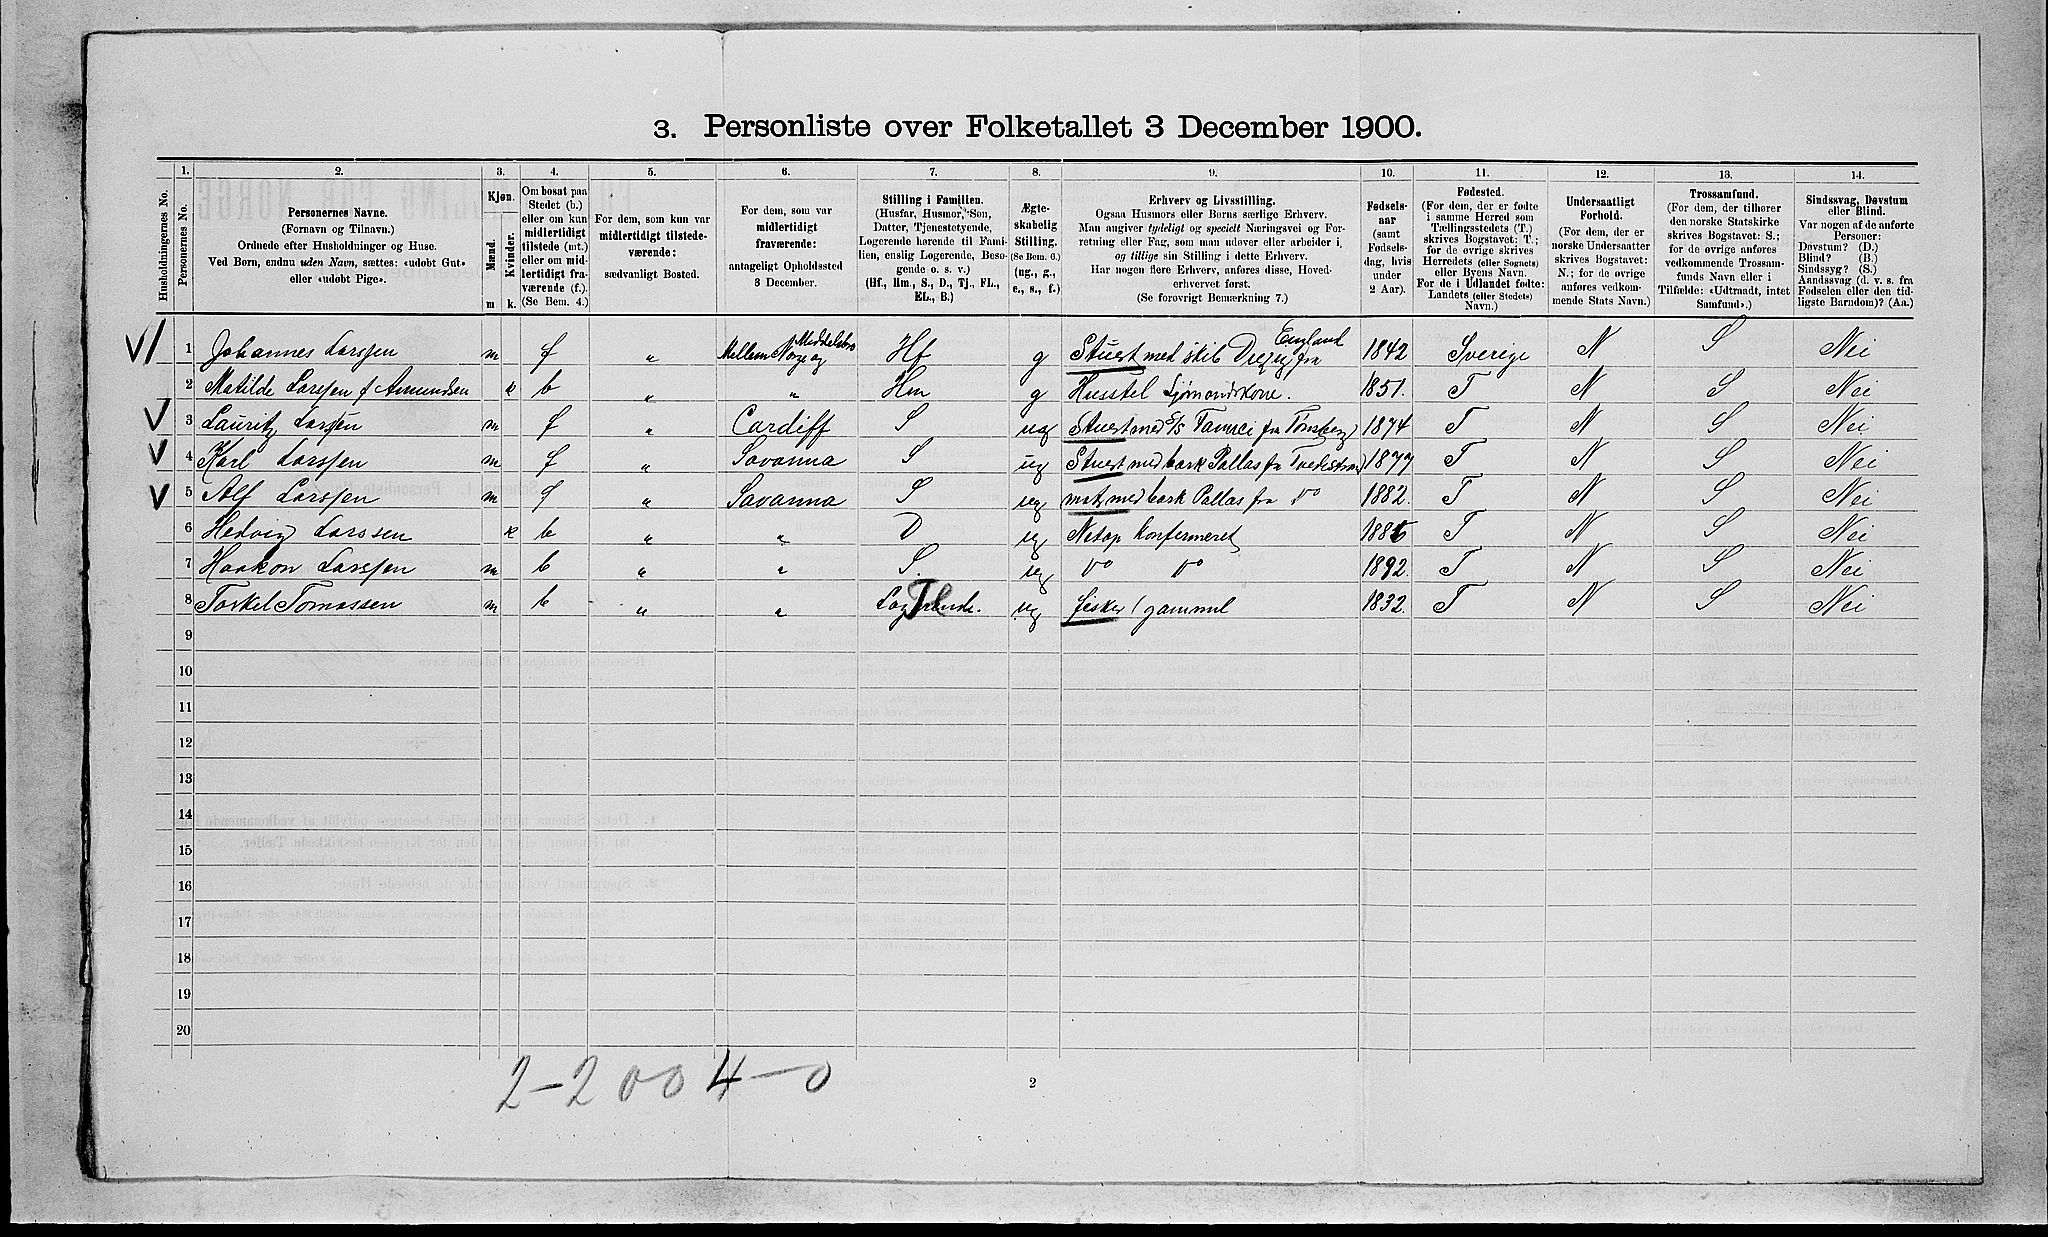 3. Personliste over Folketallet 3 December 1900.
1. 2. 3. 4. 5. 6. 7. 8. 9. 10. 11. 12. 13. 14.
Husholdningernes No.
Personernes No.
Personernes Navne.
(Fornavn og Tilnavn.)
Ordnede efter Husholdninger og Huse.
Ved Børn, endnu uden Navn, sættes: «udøbt Gut»
eller «udøbt Pige».
Kjøn.
Mænd. Kvinder.
m k.
Om bosat paa
Stedet (b.)
eller om kun
midlertidigt
tilstede (mt.)
eller om mid-
lertidigt fra-
værende (f.)
(Se Bem. 4.)
For dem, som kun var
midlertidigt tilstede-
værende:
sædvanligt Bosted.
For dem, som var
midlertidigt
fraværende:
antageligt Opholdssted
3 December.
Stilling i Familien.
(Husfar, Husmor, Søn,
Datter, Tjenestetyende,
Logerende hørende til Fami-
lien, enslig Logerende, Besø-
gende o. s. v.)
(Hf., Hm., S., D., Tj., FL.,
EL., B.)
Ægte-
skabelig
Stilling.
(Se Bem. 6.)
(ug., g.,
e., s., f.)
Erhverv og Livsstilling.
Ogsaa Husmors eller Børns særlige Erhverv.
Man angiver tydeligt og specielt Næringsvei og For-
retning eller Fag, som man udøver eller arbeider i,
og tillige sin Stilling i dette Erhverv.
Har nogen flere Erhverv, anføres disse, Hoved-
erhvervet først.
(Se forøvrigt Bemærkning 7.)
Fødsels-
aar
(samt
Fødsels-
dag, hvis
under
2 Aar).
Fødested.
(For dem, der er fødte
i samme Herred som
Tællingsstedets (T.)
skrives Bogstavet: T.;
for de øvrige skrives
Herredets (eller Sognets)
eller Byens Navn.
For de i Udlandet fødte:
Landets (eller Stedets)
Navn.)
Undersaatligt
Forhold.
(For dem, der er
norske Undersaatter
skrives Bogstavet:
N.; for de øvrige
anføres vedkom-
mende Stats Navn.)
Trossamfund.
(For dem, der tilhører
den norske Statskirke
skrives Bogstavet: S.;
for de øvrige anføres
vedkommende Trossam-
funds Navn eller i
Tilfælde: «Udtraadt, intet
Samfund».)
Sindssvag, Døvstum
eller Blind.
Var nogen af de anførte
Personer:
Døvstum? (D.)
Blind? (B.)
Sindssyg? (S.)
Aandssvag (d. v. s. fra
Fødselen eller den tid-
ligste Barndom)? (Aa.)
1 Johannes Larssen m f " Mellem Norge og Middelsbro Hf g Stuert med skib fra England 1842 Sverige N S Nei
2 Matilde Larssen f Amundsen k b " " Hm g Husstel Sjømandskone. 1851. T N S Nei
3 Lauritz Larssen m f " Cardiff S ug Stuert med S/S fra Tønsberg 1874 T N S Nei
4 Karl Larssen m f " Savanna S ug Stuert med bark Pallas fra Tvedestrand 1877 T N S Nei
5 Alf Larssen m f " Savanna S ug med bark Pallas fra do 1882. T N S Nei
6 Hedvig Larssen k b " " D ug Netop konfermeret T N S Nei
7 Haakon Larssen m b " " S. ug do do 1892. T N S Nei
8 Torkel Tomassen m b " " ug fisker / gammel 1832. T N S Nei
9
10
11
12
13
14
15
16
17
18
19
20
2-2 0 0 4-0
2